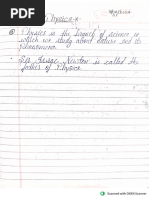 Physics
Physics is the branch of science in
which we study about nature and its
phenomenon.
Sir Isaac Newton is called the
father of Physics
Scanned with OKEN Scanner